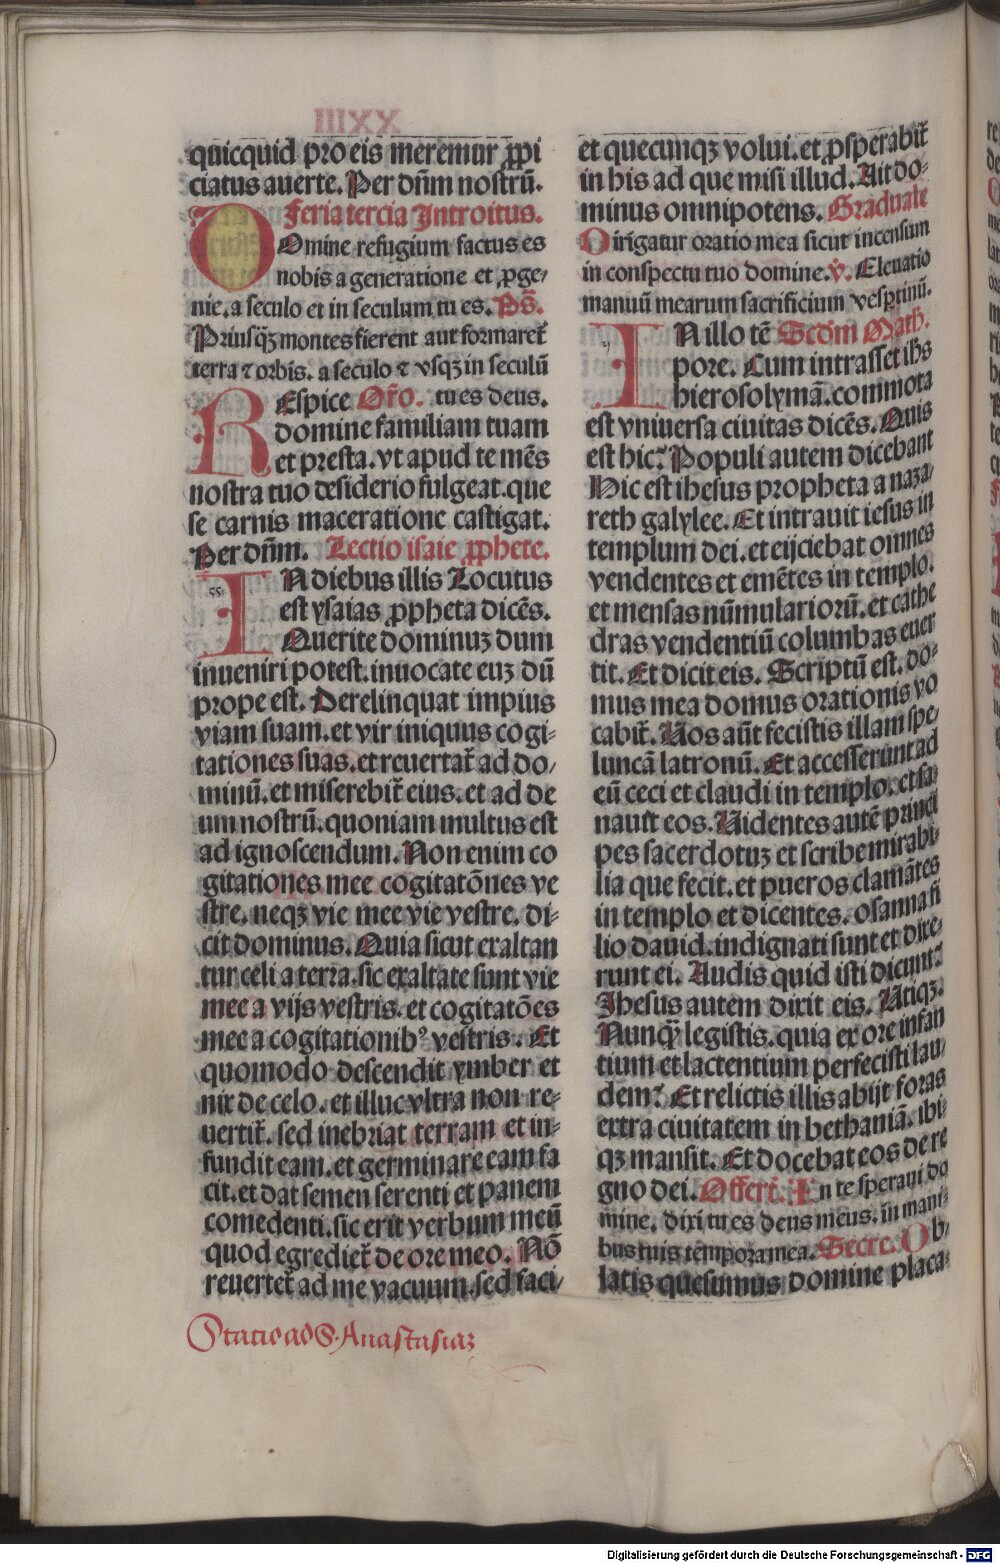 quicquid pro eis meremur ꝓpi
ciatus auerte. Per dñm nostrũ.
Feria tercia Introitus.
DOmine refugium factus es
nobis a generatione et ꝓge⸗
nie. a seculo et in seculum tu es. Ps̃.
Priusqʒ montes fierent aut formaret̃
terra ⁊ orbis. a seculo ⁊ vsqʒ in seculũ
REspice Or̃o. tu es deus.
domine familiam tuam
et presta. vt apud te mẽs
nostra tuo desiderio fulgeat. que
se carnis maceratione castigat.
Per dñm. Lectio isaie ꝓphete.
IN diebus illis Locutus
est ysaias ꝓpheta dicẽs.
Querite dominuʒ dum
inueniri potest. inuocate euʒ dũ
prope est. Derelinquat impius
viam suam. et vir iniquus cogi⸗
tationes suas. et reuertat̃ ad do⸗
minũ. et miserebit̃ eius. et ad de
um nostrũ. quoniam multus est
ad ignoscendum. Non enim co
gitationes mee cogitatõnes ve
stre. neqʒ vie mee vie vestre. di⸗
cit dominus. Quia sicut exaltan
tur celi a terra. sic exaltate sunt vie
mee a vijs vestris. et cogitatões
mee a cogitationibꝰ vestris. Et
quomodo descendit ymber et
nix de celo. et illuc vltra non re⸗
uertit̃. sed inebriat terram et in⸗
fundit eam. et germinare eam fa
cit. et dat semen serenti et panem
comedenti. sic erit verbum meũ
quod egrediet̃ de ore meo. Nõ
reuertet̃ ad me vacuum. sed faci⸗
Statio ad S. Anastasiaʒ
et quecunqʒ volui. et ꝓsperabit̃
in his ad que misi illud. Ait do⸗
minus omnipotens. Graduale
Dirigatur oratio mea sicut incensum
in conspectu tuo domine. v̾. Eleuatio
manuũ mearum sacrificium vesꝑtinũ.
IN illo tẽ Scd̃m Math.
pore. Cum intrasset ihs
hierosolymã. commota
est vniuersa ciuitas dicẽs. Quis
est hic? Populi autem dicebant
Hic est ihesus propheta a naza⸗
reth galylee. Et intrauit iesus in
templum dei. et eijciebat omnes
vendentes et emẽtes in templo.
et mensas nũmulariorũ. et cathe
dras vendentiũ columbas euer
tit. Et dicit eis. Scriptũ est. do⸗
mus mea domus orationis vo
cabit̃. Vos aũt fecistis illam spe⸗
luncã latronũ. Et accesserunt ad
eũ ceci et claudi in templo. et sa⸗
nauit eos. Videntes autẽ princi
pes sacerdotuʒ et scribe mirabi⸗
lia que fecit. et pueros clamãtes
in templo et dicentes. osanna fi
lio dauid. indignati sunt et dixe⸗
runt ei. Audis quid isti dicunt?
Ihesus autem dixit eis. Vtiqʒ.
Nunqʒ̃ legistis. quia ex ore infan
tium et lactentium perfecisti lau⸗
dem? Et relictis illis abijt foras
extra ciuitatem in bethaniã. ibi⸗
qʒ mansit. Et docebat eos de re
gno dei. Offert̃. In te speraui do
mine. dixi tu es deus meus. in mani⸗
bus tuis tempora mea. Secre. Ob⸗
latis quesumus domine placa⸗
Digitalisierung gefördert durch die Deutsche Forschungsgemeinschaft - DFG